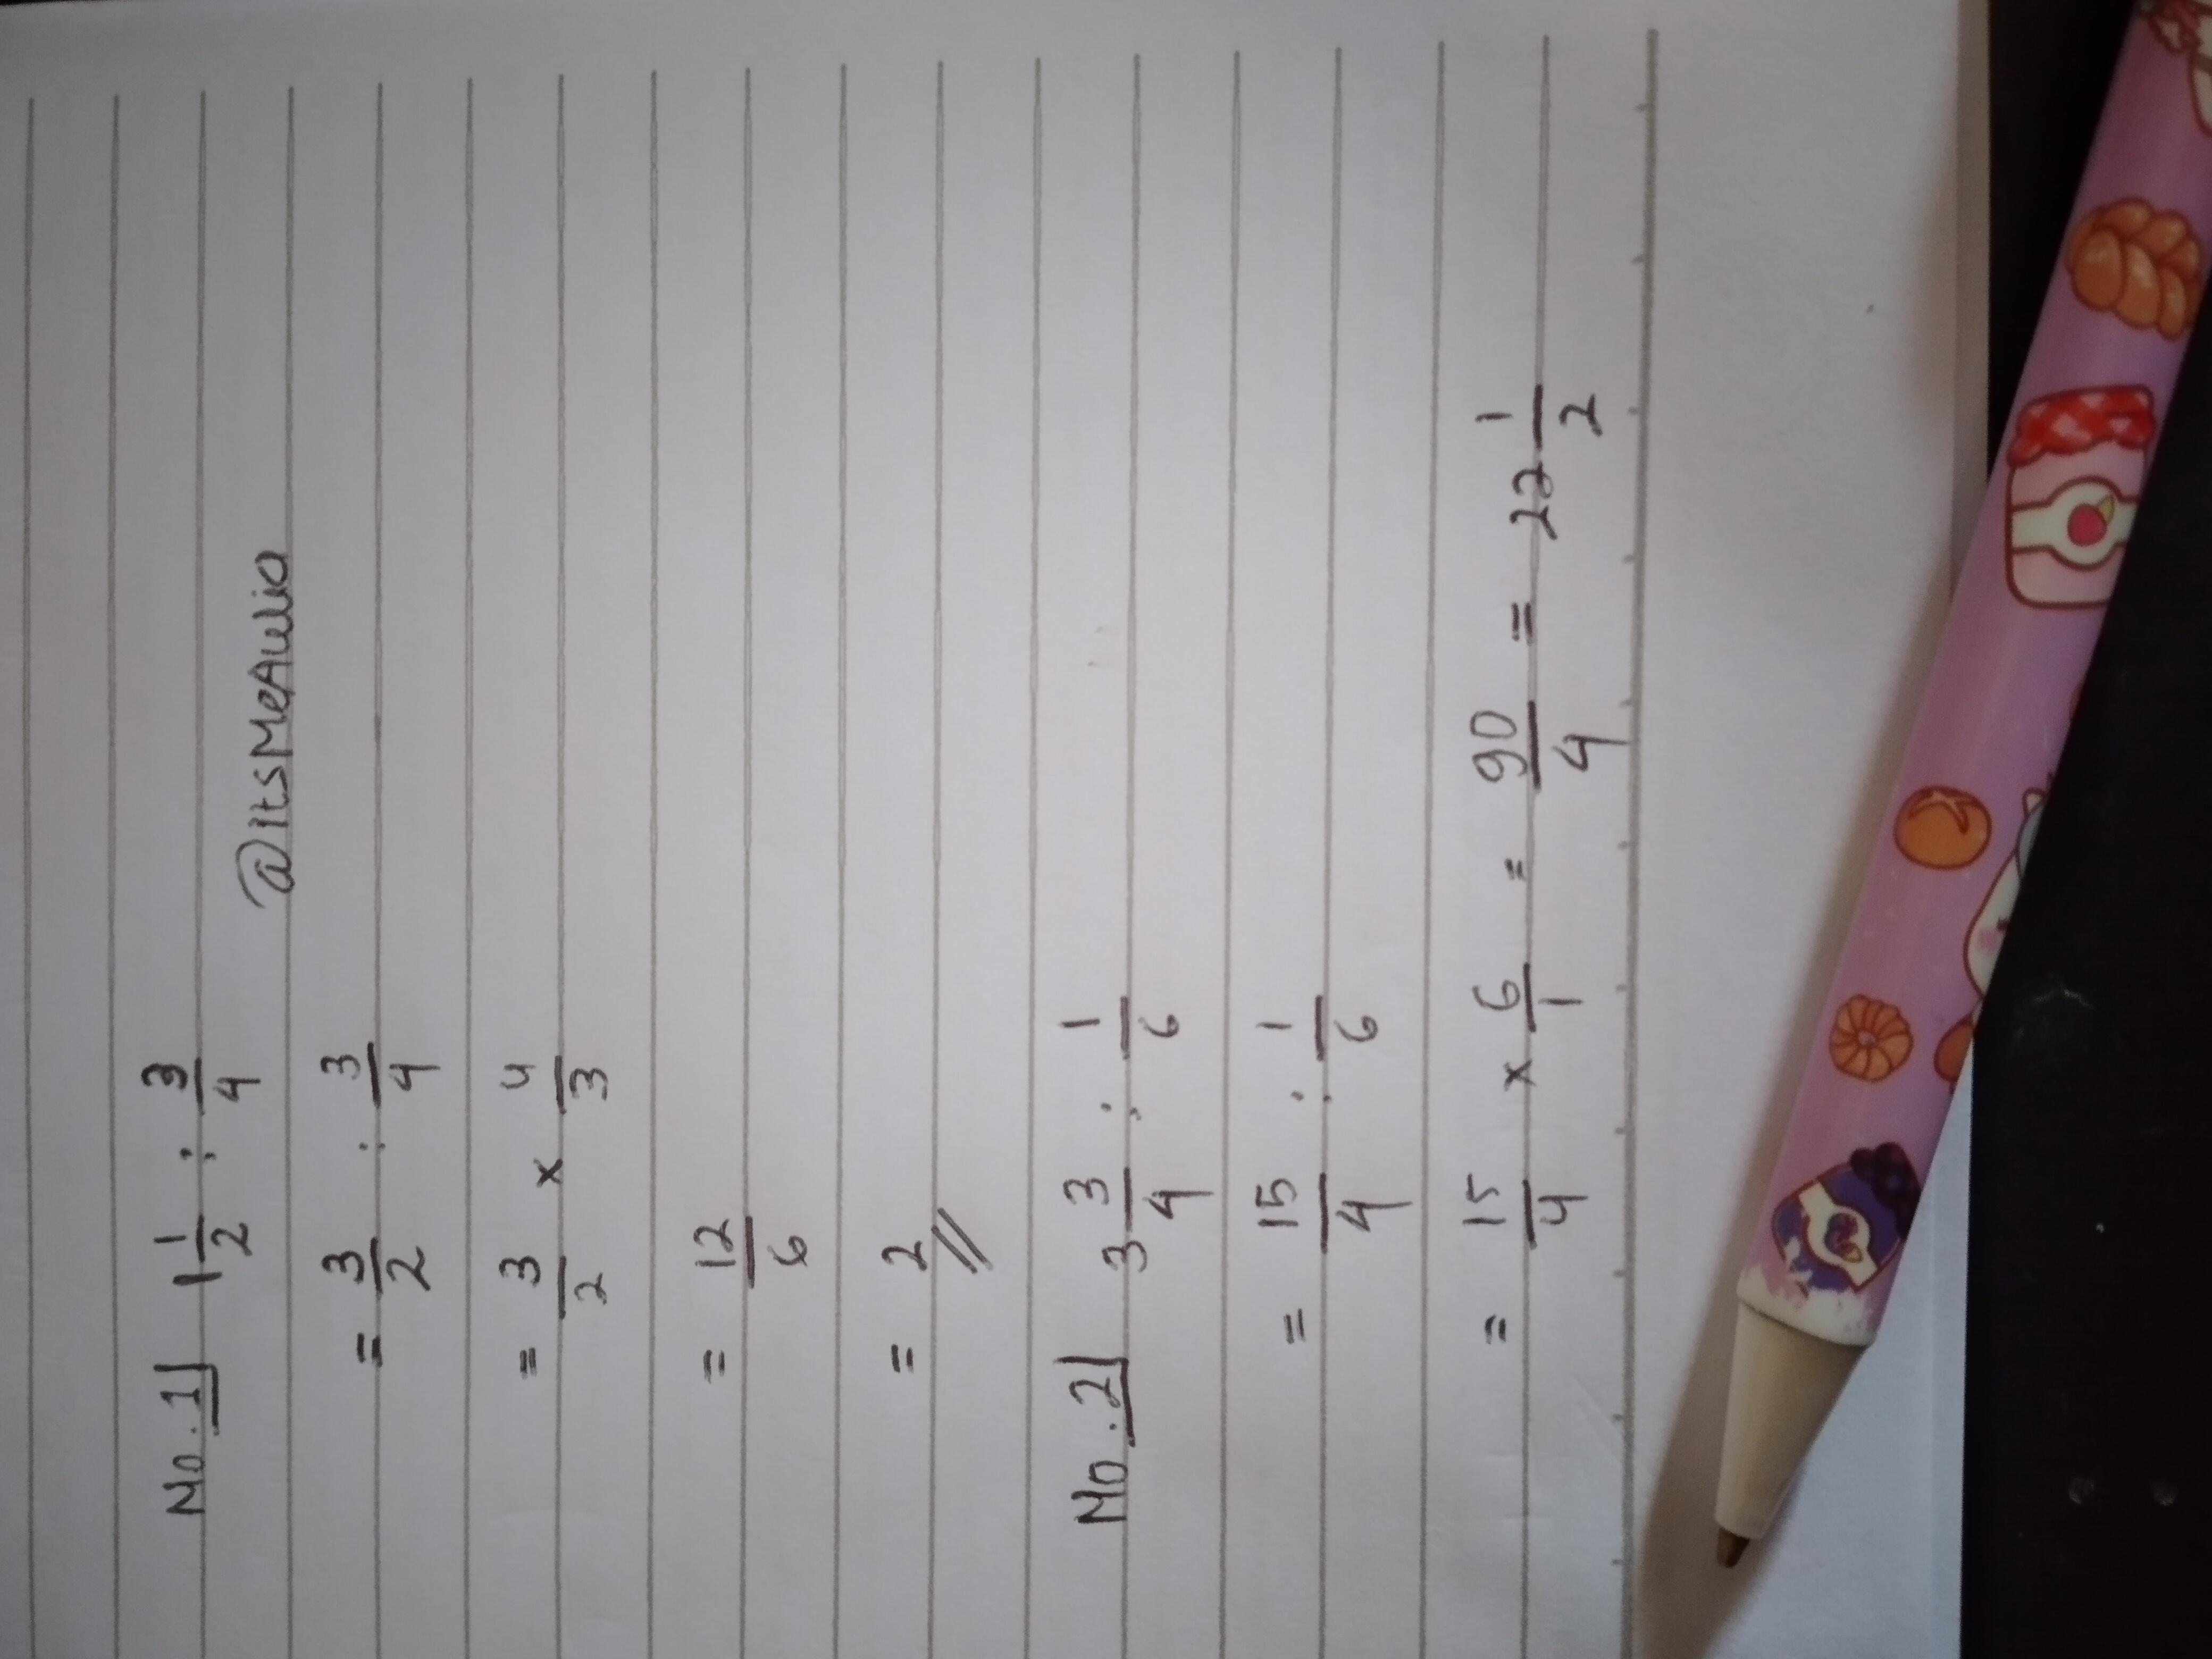 No. 1 1 1/2 : 3/4
@ItsMeAulia
= 3/2 : 3/4
= 3/2 x 4/3
= 12/6
= 2//
No. 2 3 3/4 : 1/6
= 15/4 : 1/6
= 15/4 x 6/1 = 90/4 = 22 1/2